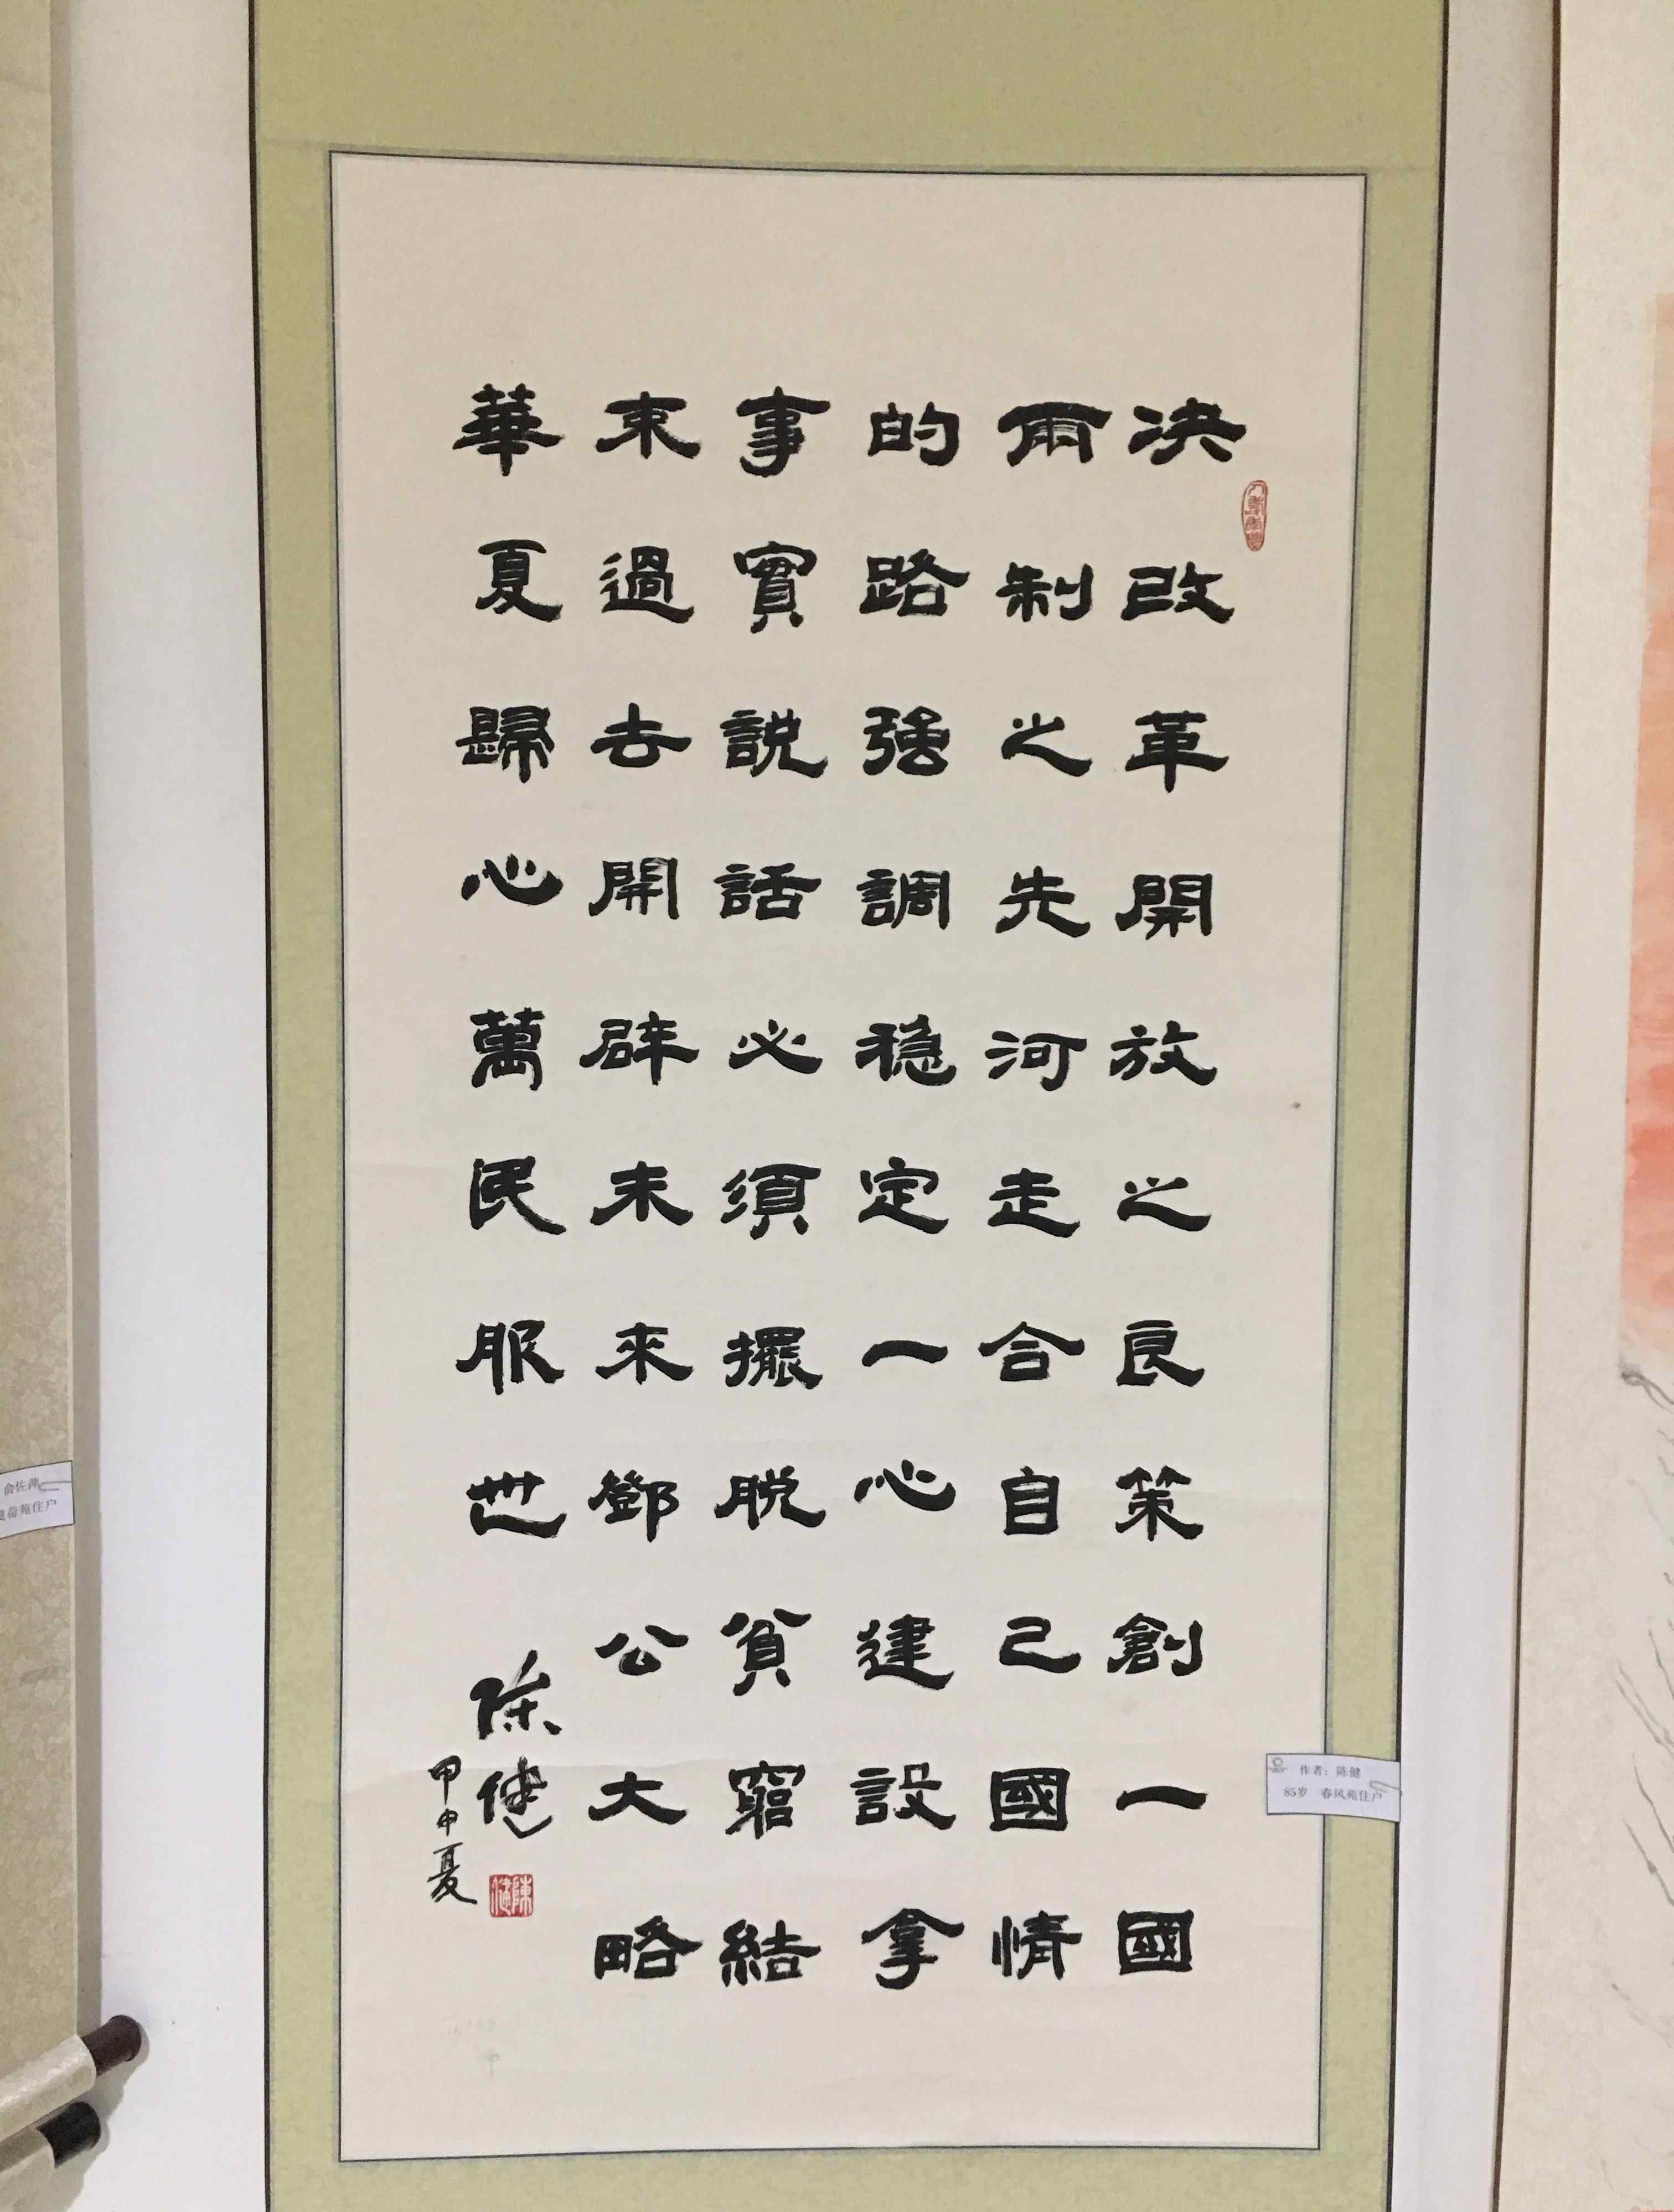 决改革開放之良策創一國
兩制之先河走合自己國情
的路强調稳定一心建設拿
事實說話必須擺脱貧窮結
束過去開辟未來鄧公大略
華夏歸心萬民服世
陈健
甲申夏
陳健
作者：陈健
85岁 春风苑住户
俞佐
荷苑住户